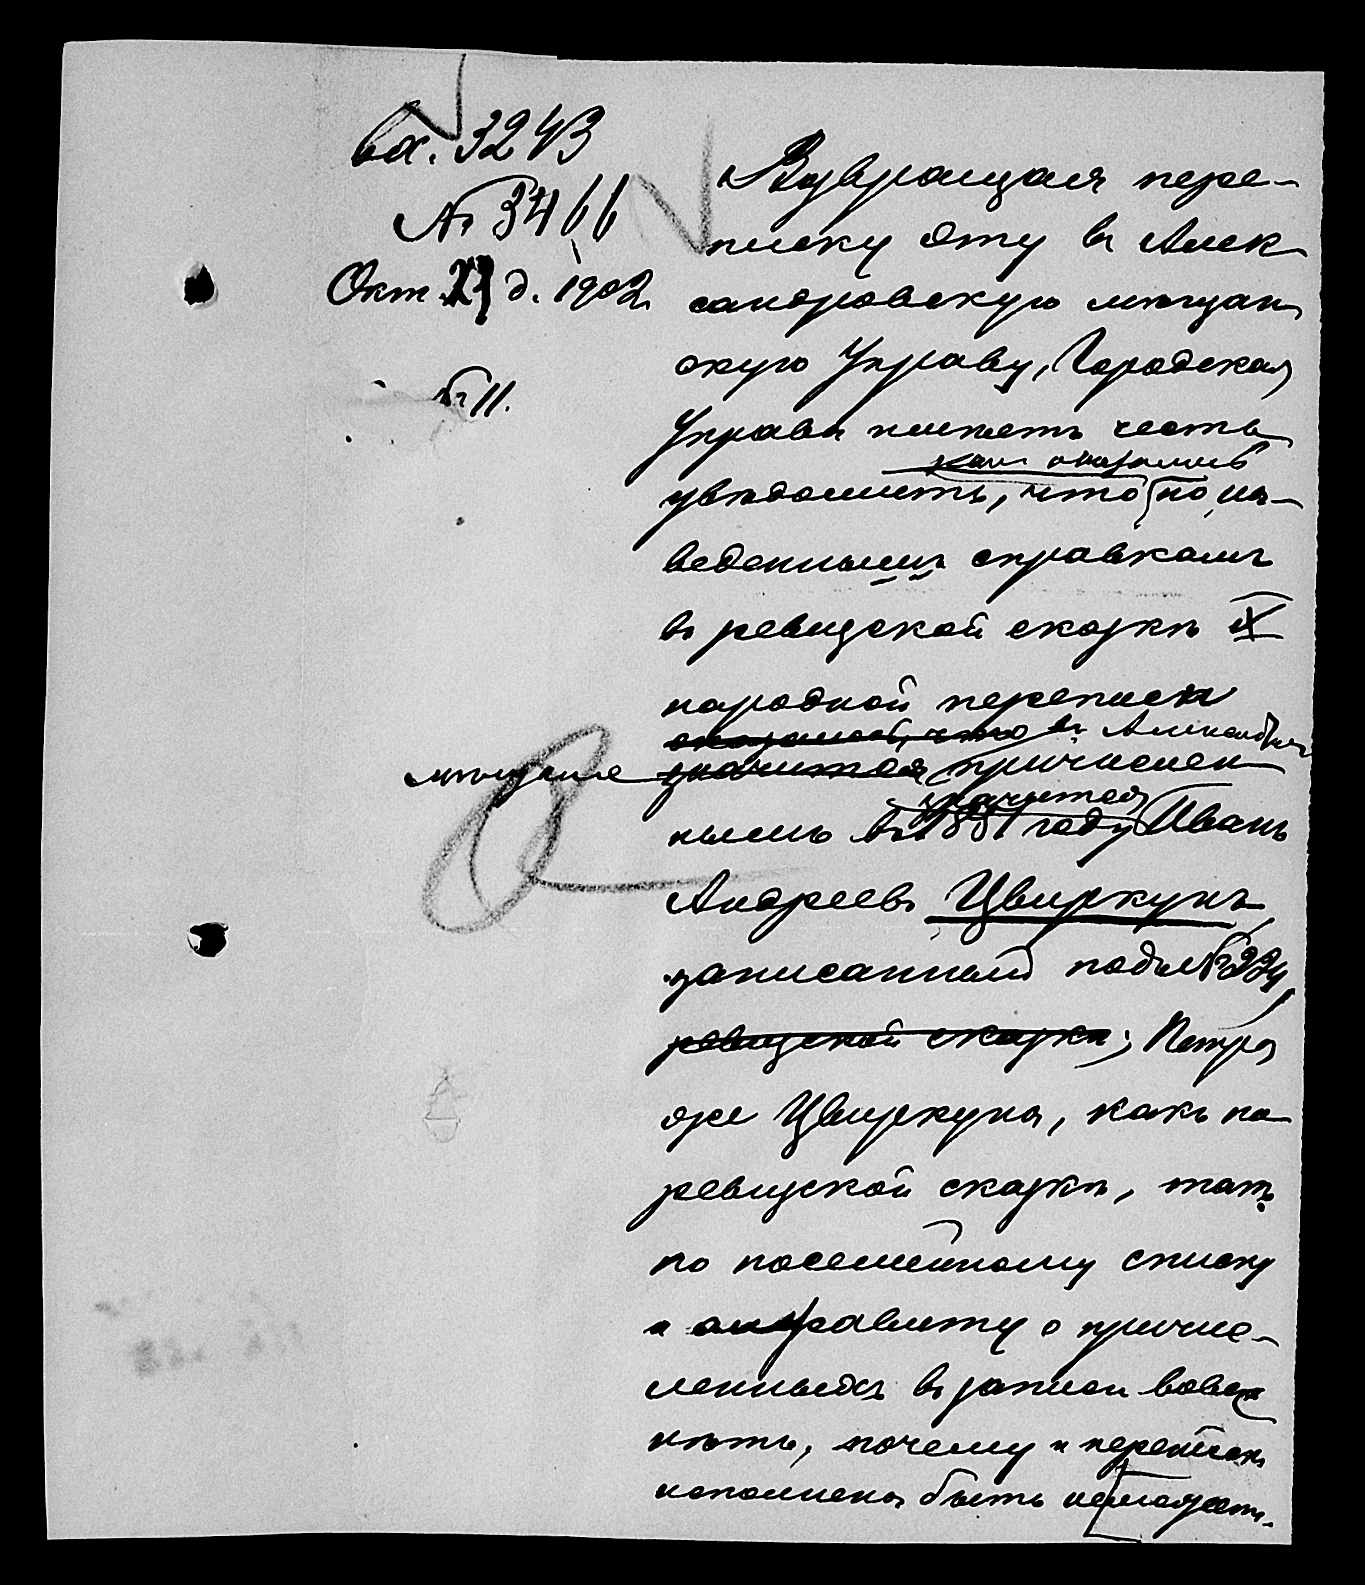 вх. 3243
№ 3466
Окт. 23 д. 1902
№ 11.
Возвращая пере-
писку эту въ Алек
сандровскую мѣщан
скую Управу, Городская
Управа имѣетъ честь
какъ оказалось
увѣдомить, что по на-
веденнымъ справкамъ
въ ревизской сказкѣ IX
народной переписи
оказалось, что въ Александров
мѣщане значится причислен
значится
нымъ въ 1851 году Иванъ
Андреевъ Цвиркунъ
записанный подъ № 224,
ревизской сказки; Петра
же Цвиркуна, какъ по
ревизской сказкѣ, такъ
по посемейному списку
и алфавиту о причис-
ленныхъ въ записи вовсе
нѣтъ, почему и переписка
исполнена быть не можетъ.